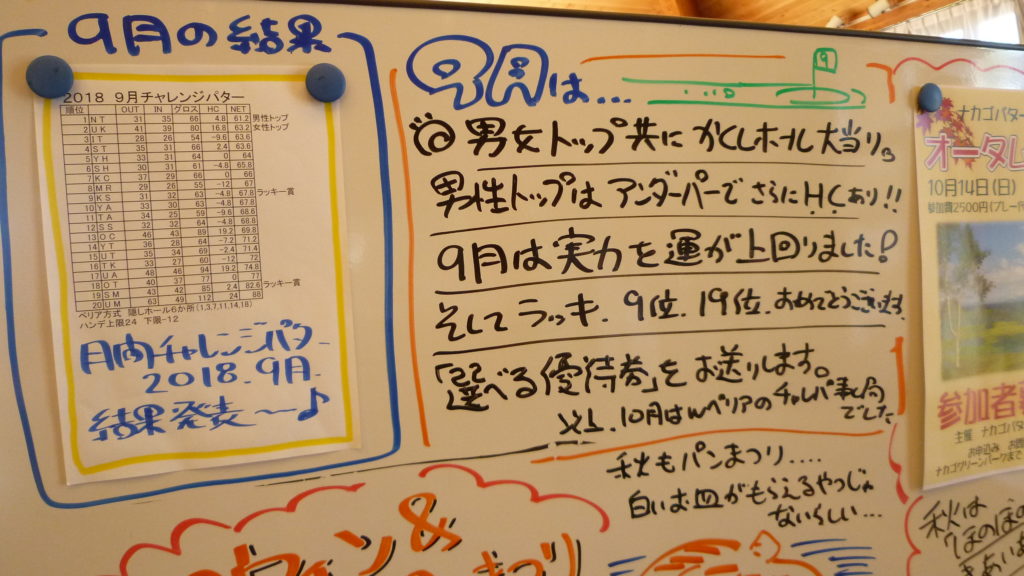 9月の結果
2018 9月チャレンジパター
順位 OUT IN グロス HC NET
1 NT 31 35 66 4.8 61.2 男性トップ
2 UK 41 39 80 16.8 63.2 女性トップ
3 IT 28 26 54 -9.6 63.6
4 ST 35 31 66 2.4 63.6
5 YH 33 31 64 0 64
6 SH 30 31 61 -4.8 65.8
7 KC 37 29 66 0 66
8 MR 29 26 55 -12 67
9 KS 31 32 63 -4.8 67.8 ラッキー賞
10 YA 33 30 63 -4.8 67.8
11 TA 34 25 59 -9.6 68.6
12 SS 32 32 64 -4.8 68.8
13 OC 46 43 89 19.2 69.8
14 YT 36 28 64 -7.2 71.2
15 UT 35 34 69 -2.4 71.4
16 TK 33 27 60 -12 72
17 UA 48 46 94 19.2 74.8
18 OT 40 37 77 0
19 SM 43 42 85 2.4 82.6 ラッキー賞
20 UM 63 49 112 24 88
ペリア方式 隠しホール6か所(1,3,7,11,14,18)
ハンデ上限24 下限-12
月向チャレンジパター
2018.9月.
結果発表〜♪
9月は...
9
◎男女トップ共に かくしホール大当り。
男性トップは アンダーパーで さらにH.C.あり!!
9月は実力を運が上回りました!
そしてラッキ. 9位. 19位. おめでとうございます.
「選べる優待券」をお送りします。
以上. 10月はWペリアのチャレパ事務局
でした
秋もパンまつり....
白いお皿がもらえるやつじゃ
ないらしい...
&
まつり
ナカゴパター
オータム
10月14日(日)
参加費2500円(プレー代
参加者募
主催 ナカゴパタ
お申込み お問
ナカゴグリーンパークまで
秋は
ほのぼの